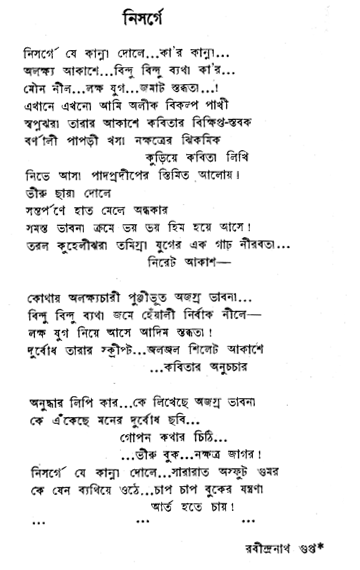 নিসর্গে
নিসর্গে যে কান্না দোলে...কা'র কান্না...
অলক্ষ্য আকাশে...বিন্দু বিন্দু ব্যথা কা'র...
মৌন নীল...লক্ষ যুগ...জমাট স্তব্ধতা...!
এখানে এখনো আমি অলীক বিকল্প পাখী
স্বপ্নঝরা তারার আকাশে কবিতার বিক্ষিপ্ত-স্তবক
বর্ণালী পাপড়ী খসা নক্ষত্রের ঝিকমিক
কুড়িয়ে কবিতা লিখি
নিভে আসা পাদপ্রদীপের স্তিমিত আলোয়।
ভীরু ছায়া দোলে
সন্তর্পণে হাত মেলে অন্ধকার
সমস্ত ভাবনা ক্রমে ভয় ভয় হিম হয়ে আসে!
তরল কুহেলীঝরা তমিস্রা যুগের এক গাঢ় নীরবতা...
নিরেট আকাশ—
কোথায় অলক্ষ্যচারী পুঞ্জীভূত অজস্র ভাবনা...
বিন্দু বিন্দু ব্যথা জমে হেঁয়ালী নির্বাক নীলে—
লক্ষ যুগ নিয়ে আসে আদিম স্তব্ধতা!
দুর্বোধ তারার স্ক্রীপ্ট...জলজল শিলেট আকাশে
...কবিতার অনুচ্চার
অনুদ্ধার লিপি কার...কে লিখেছে অজস্র ভাবনা
কে এঁকেছে মনের দুর্বোধ ছবি...
গোপন কথার চিঠি...
...ভীরু বুক...নক্ষত্র জাগর!
নিসর্গে যে কান্না দোলে...সারারাত অস্ফুট গুমর
কে যেন ব্যথিয়ে ওঠে...চাপ চাপ বুকের যন্ত্রণা
আর্ত হতে চায়!
... ... ... ...
রবীন্দ্রনাথ গুপ্ত*